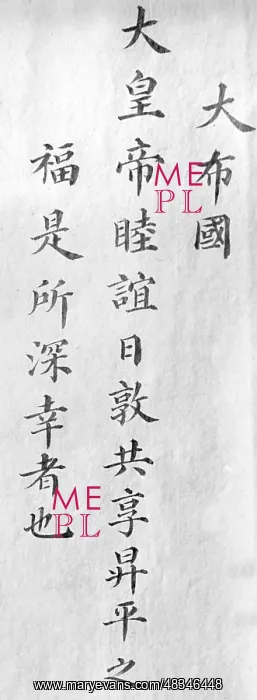 大布國
大皇帝睦誼日敦共享昇平之
福是所深幸者也
ME
PL
ME
PL
www.maryevans.com/48346448